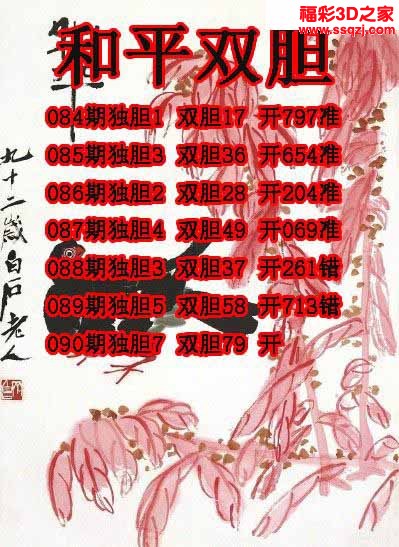 福彩3D之家
www.ssqzj.com
和平双胆
084期独胆1 双胆17 开797准
085期独胆3 双胆36 开654准
086期独胆2 双胆28 开204准
087期独胆4 双胆49 开069准
088期独胆3 双胆37 开261错
089期独胆5 双胆58 开713错
090期独胆7 双胆79 开
九十二岁白石老人